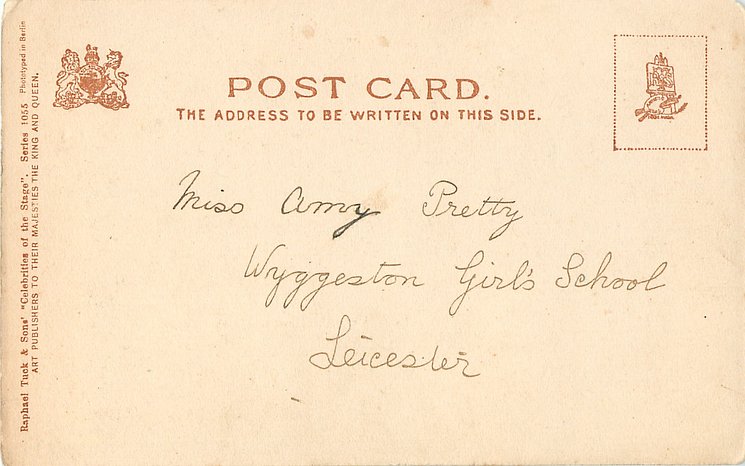 POST CARD.
THE ADDRESS TO BE WRITTEN ON THIS SIDE.
Miss Amy Pretty
Wyggeston Girl's School
Leicester
Raphael Tuck & Sons' "Celebrities of the Stage". Series 1055 Phototyped in Berlin
ART PUBLISHERS TO THEIR MAJESTIES THE KING AND QUEEN.